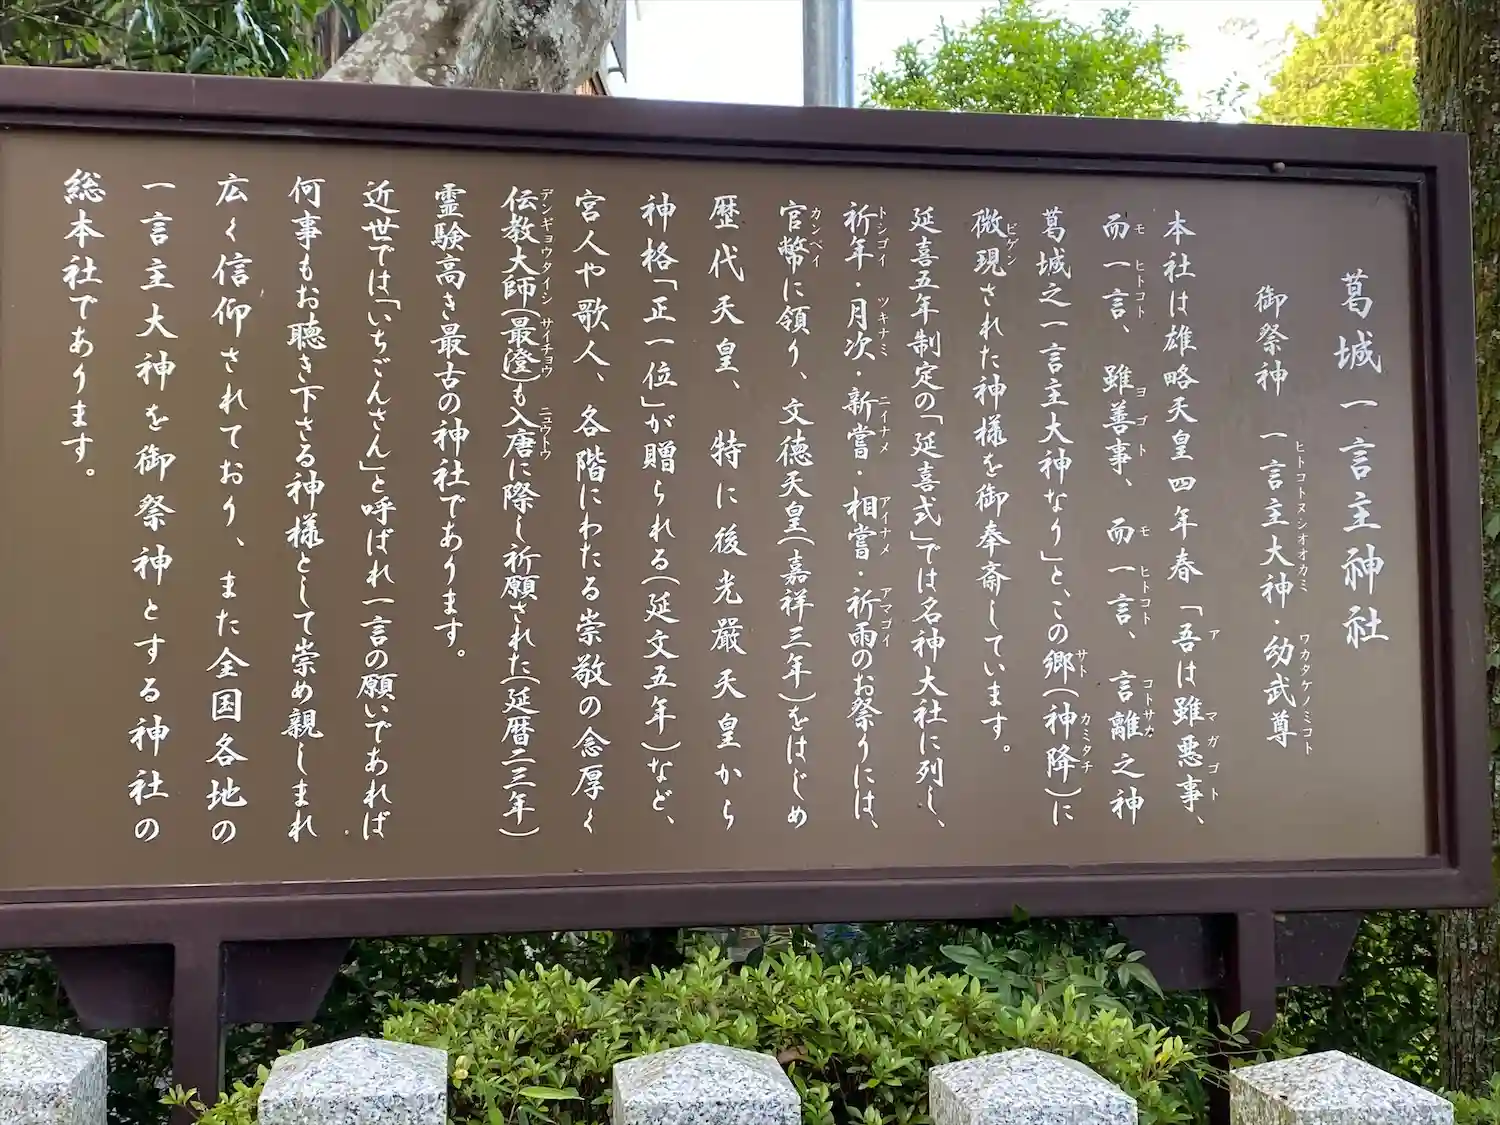 葛城一言主神社
御祭神　一言主大神・幼武尊
本社は雄略天皇四年春「吾は雖悪事、
而一言、雖善事、而一言、言離之神
葛城之一言主大神なり」と、この郷(神降)に
微現された神様を御奉斎しています。
延喜五年制定の「延喜式」では名神大社に列し、
祈年・月次・新嘗・相嘗・祈雨のお祭りには、
官幣に領り、文徳天皇(嘉祥三年)をはじめ
歴代天皇、特に後光厳天皇から
神格「正一位」が贈られる(延文五年)など、
宮人や歌人、各階にわたる崇敬の念厚く
伝教大師(最澄)も入唐に際し祈願された(延暦二三年)
霊験高き最古の神社であります。
近世では「いちごんさん」と呼ばれ一言の願いであれば
何事もお聴き下さる神様として崇め親しまれ
広く信仰されており、また全国各地の
一言主大神を御祭神とする神社の
総本社であります。